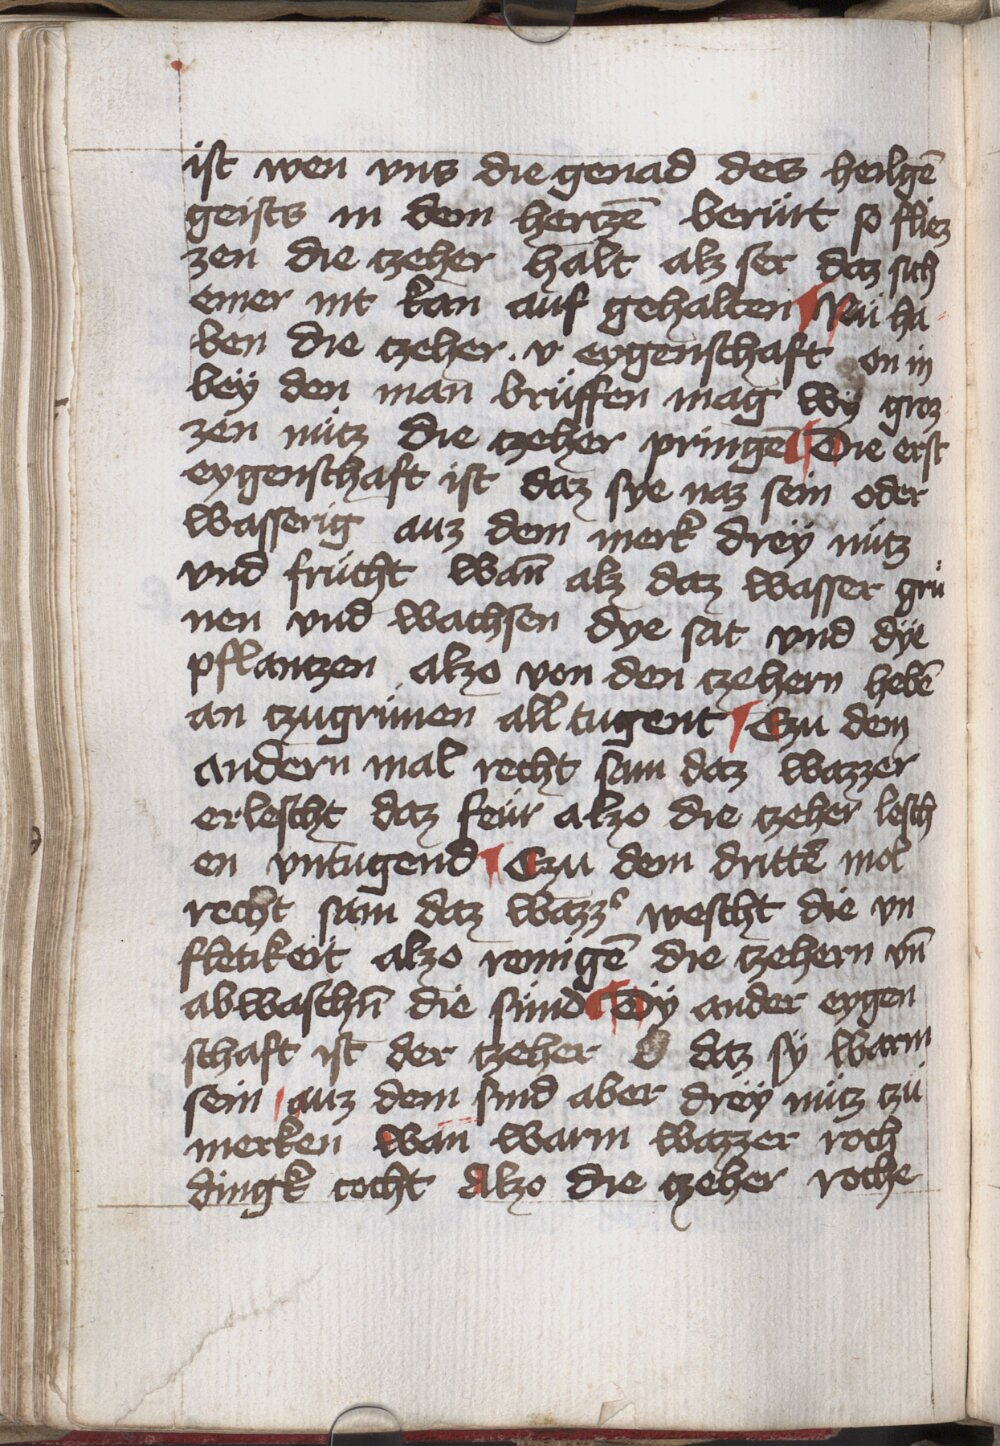 ist wen vns die genad des heilgē
geists in dem hertzē berürt so fliez
zen die czeher halt alz ser daz sich
einer nit kan auf gehalten Nu ha
ben die czeher . v eygenschaft on in
bey den man brüffen mag wÿ groz
zen nutz die czeher pringē Die erst
eygenschaft ist daz sye naz sein oder
wasserig auz dem merk drey nütz
vnd frücht wan̄ alz daz wasser grü
nen vnd wachsen dye sat vnd dÿe
pflantzen alzo von den czehern hebē
an czugrünen all tugent Czu dem
andern mal recht sam daz wazzer
erlescht daz feür alzo die czeher lesch
en vntugend Czu dem drittē mol
recht sam daz wazz̓ wescht die vn
fletikeit alzo reinigē die czehern vn̄
abwaschn̄ die sünd Dÿ ander eygen
schaft ist der czeher daz sÿ warm
sein auz dem sind aber drëy nütz czü
merken wan̄ warm wazzer roch
dingk cocht Alzo die czeher roche